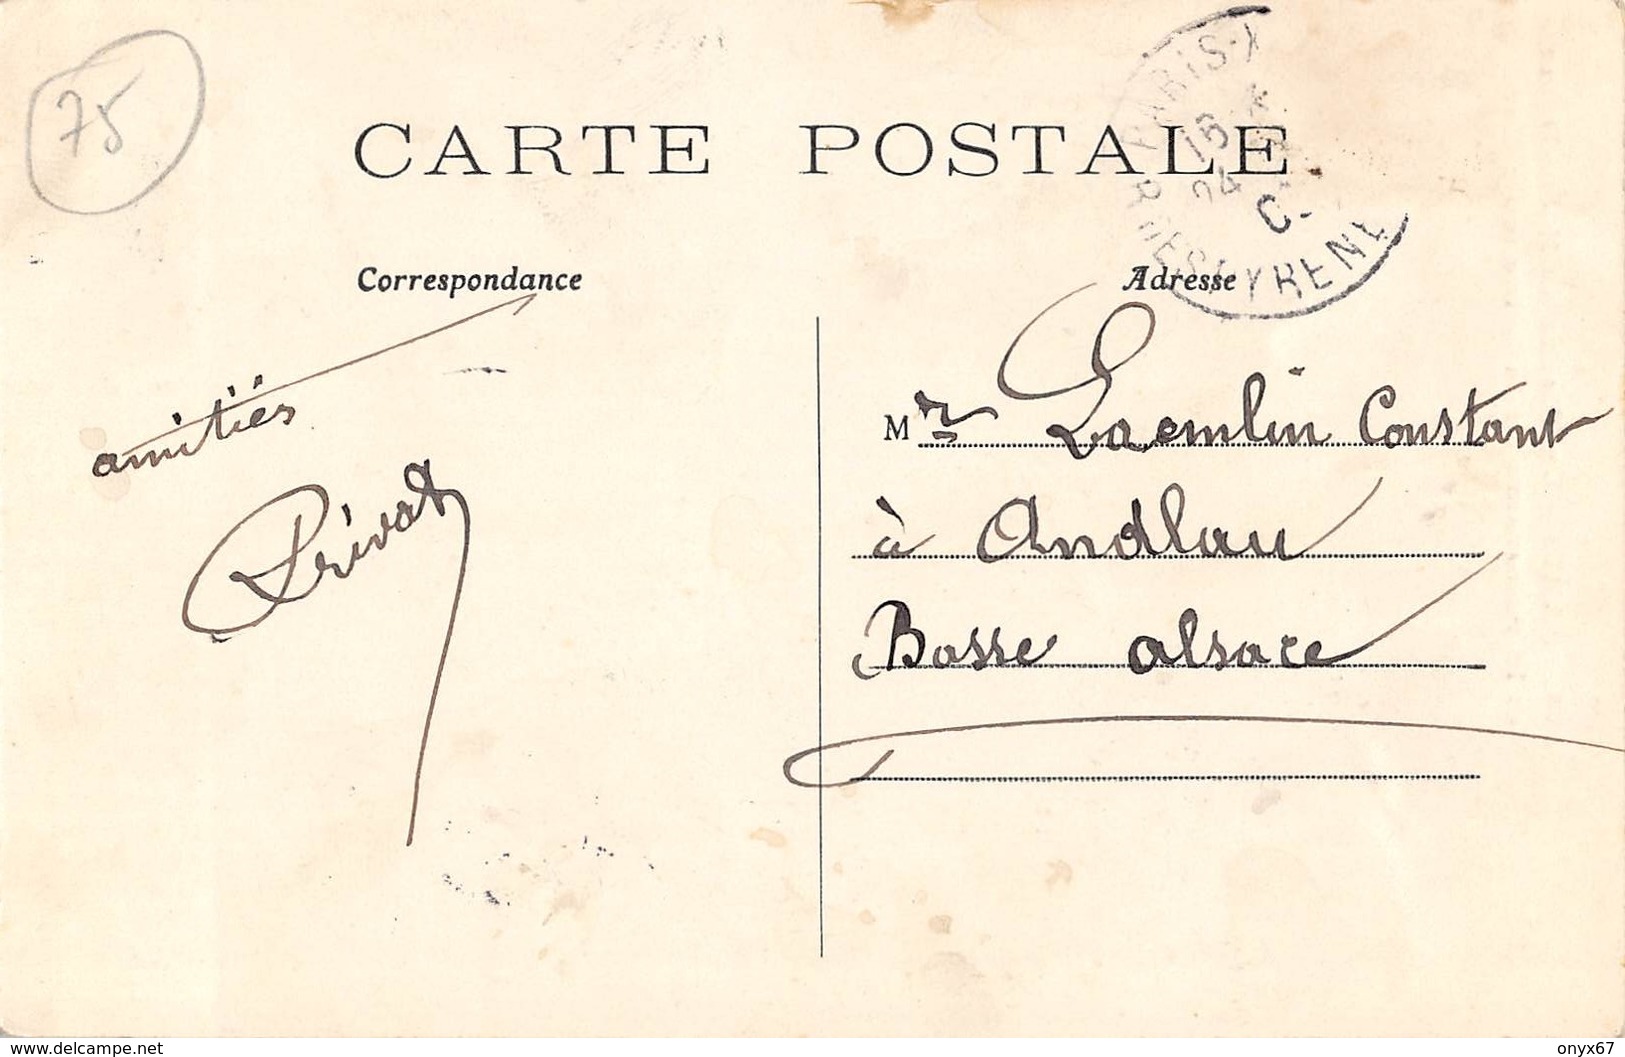 75
CARTE POSTALE
PARIS-X
16
24
C-
R DES PYRENE
Correspondance
Adresse
amitiés
Privat
Mr Laemlin Constant
à Andlau
Basse alsace
www.delcampe.net
onyx67